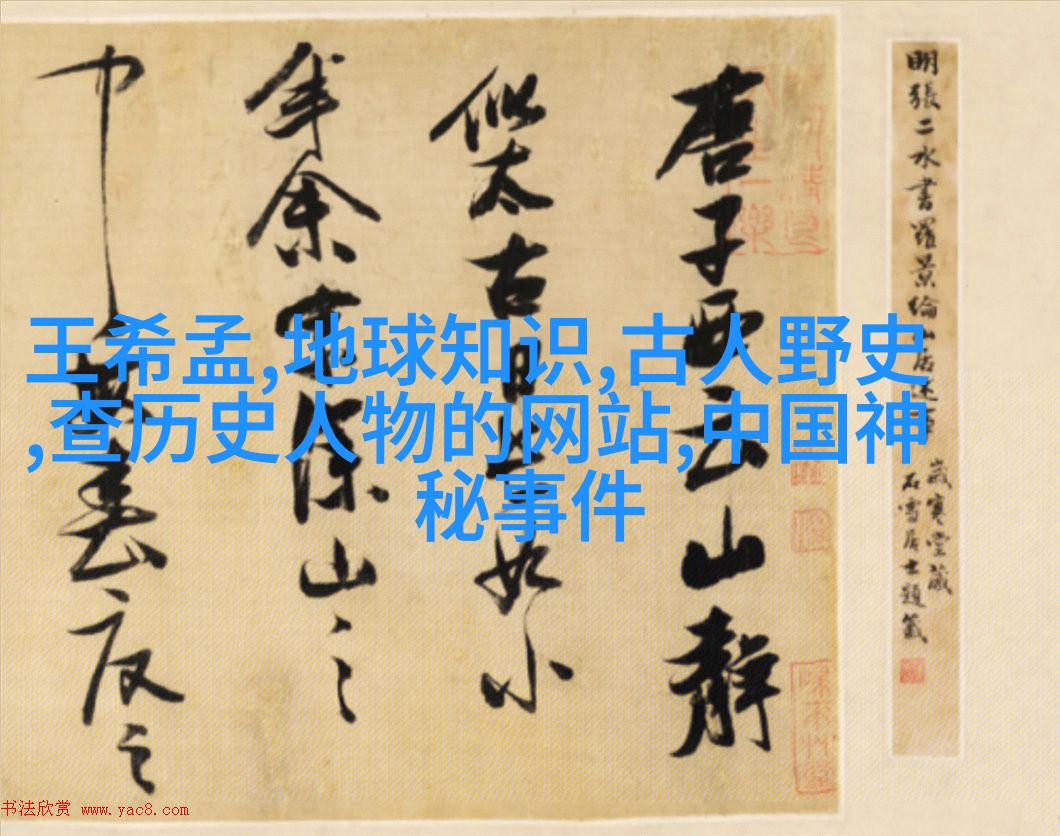 明張二水書羅景綸山居
歲寒堂藏
石雪居士題籤
唐子西云山靜
似太古日長如小
年余家深山之
中每春夏之
王希孟,地球知识,古人野史
,查历史人物的网站,中国神
秘事件
书法欣赏 www.yac8.com